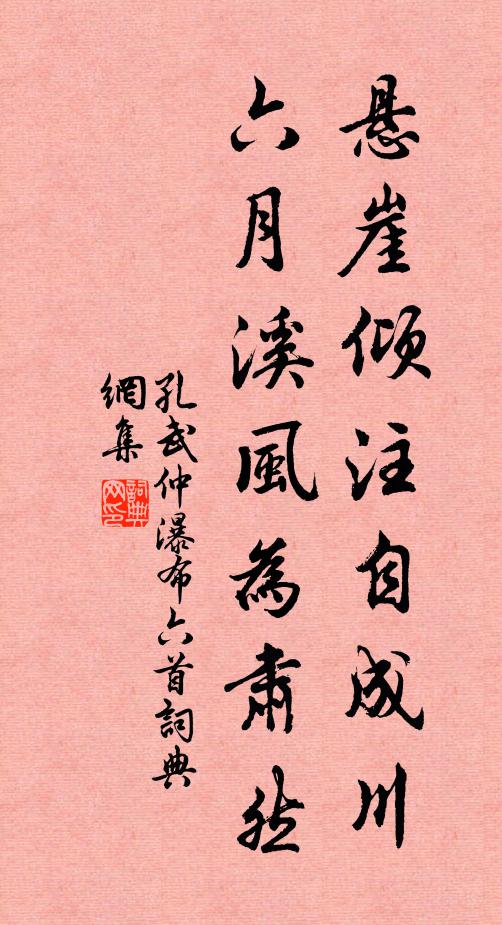 悬崖倾注自成川
六月溪風為肅然
孔武仲瀑布六首詞典
網集
詞典
网印